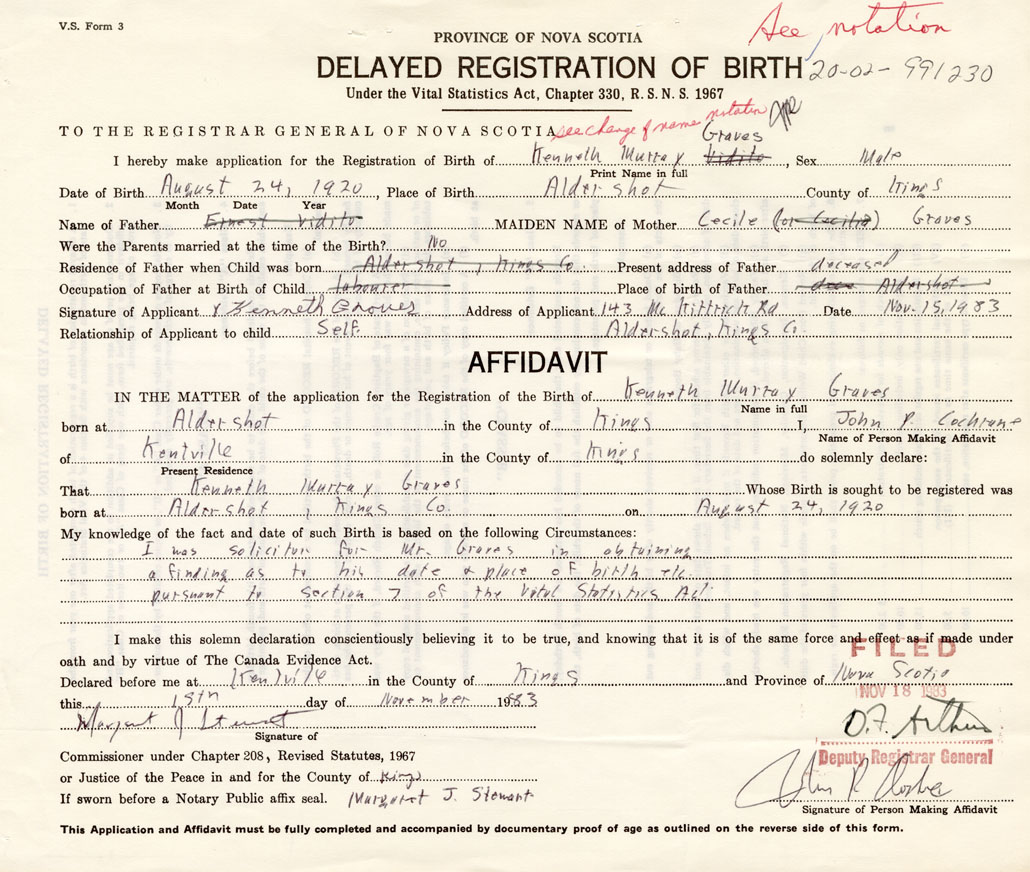 V.S. Form 3
See notation
PROVINCE OF NOVA SCOTIA
DELAYED REGISTRATION OF BIRTH 20-02-991230
Under the Vital Statistics Act, Chapter 330, R. S. N. S. 1967
TO THE REGISTRAR GENERAL OF NOVA SCOTIA see change of name notation
Graves
I hereby make application for the Registration of Birth of Kenneth Murray Vidito, Sex Male
Print Name in full
Date of Birth August 24, 1920, Place of Birth Aldershot County of Kings
Month Date Year
Name of Father Ernest Vidito MAIDEN NAME of Mother Cecile (or Cecilia) Graves
Were the Parents married at the time of the Birth? No
Residence of Father when Child was born Aldershot, Kings Co. Present address of Father deceased
Occupation of Father at Birth of Child labourer Place of birth of Father Aldershot
Signature of Applicant x Kenneth Graves Address of Applicant 143 McKittrick Rd Date Nov. 15, 1983
Relationship of Applicant to child Self Aldershot, Kings Co.
AFFIDAVIT
IN THE MATTER of the application for the Registration of the Birth of Kenneth Murray Graves
Name in full
born at Aldershot in the County of Kings I, John P. Cochrane
Name of Person Making Affidavit
of Kentville in the County of Kings do solemnly declare:
Present Residence
That Kenneth Murray Graves Whose Birth is sought to be registered was
born at Aldershot, Kings Co. on August 24, 1920
My knowledge of the fact and date of such Birth is based on the following Circumstances:
I was solicitor for Mr. Graves in obtaining
a finding as to his date & place of birth etc.
pursuant to Section 7 of the Vital Statistics Act
I make this solemn declaration conscientiously believing it to be true, and knowing that it is of the same force and effect as if made under
oath and by virtue of The Canada Evidence Act.
FILED
Declared before me at Kentville in the County of Kings and Province of Nova Scotia
this 15th day of November 1983
NOV 18 1983
Margaret J Stewart
D.F. Arthur
Signature of
Commissioner under Chapter 208, Revised Statutes, 1967
Deputy Registrar General
or Justice of the Peace in and for the County of Kings
If sworn before a Notary Public affix seal. Margaret J. Stewart
Signature of Person Making Affidavit
This Application and Affidavit must be fully completed and accompanied by documentary proof of age as outlined on the reverse side of this form.